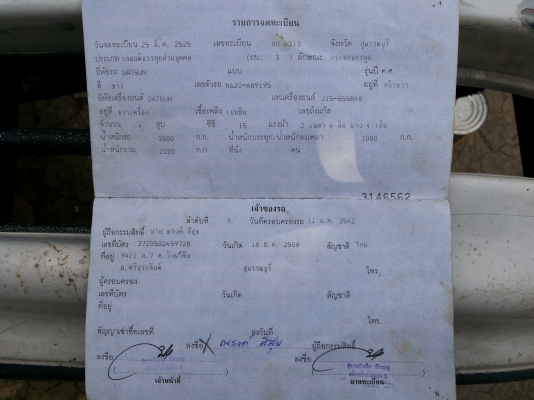 รายการจดทะเบียน
วันจดทะเบียน 25 มี.ค. 2525 เลขทะเบียน 6313 จังหวัด สุพรรณบุรี
ประเภท รถยนต์บรรทุกส่วนบุคคล (รย. 3 ) ลักษณะ กระบะบรรทุก
ยี่ห้อรถ DATSUN แบบ รุ่นปี ค.ศ.
สี ขาว เลขตัวรถ N620-A89195 อยู่ที่
ยี่ห้อเครื่องยนต์ DATSUN เลขเครื่องยนต์ J15-855848
อยู่ที่ เชื้อเพลิง เบนซิน เลขถังแก๊ส
จำนวน 4 สูบ ซีซี 15 แรงม้า 2 เพลา 4 ล้อ ยาง 4 เส้น
น้ำหนักรถ 1000 ก.ก. น้ำหนักบรรทุก/น้ำหนักลงเพลา 1000 ก.ก.
น้ำหนักรวม 2000 ก.ก. ที่นั่ง คน
3146562
เจ้าของรถ
ลำดับที่ วันที่ครอบครองรถ 11 พ.ค. 2542
ผู้ถือกรรมสิทธิ์ นาย ณรงค์ ศรีสุข
เลขที่บัตร 3720500459728 วันเกิด 18 ธ.ค. 2508 สัญชาติ ไทย
ที่อยู่ 94/1 ม.7 ต.วังน้ำซับ
อ.ศรีประจันต์ สุพรรณบุรี โทร.
ผู้ครอบครอง
เลขที่บัตร วันเกิด สัญชาติ
ที่อยู่
โทร.
สัญญาเช่าซื้อเลขที่ ลงวันที่
ลงชื่อ ณรงค์ ศรีสุข ผู้ถือกรรมสิทธิ์
ลงชื่อ ลงชื่อ
เจ้าหน้าที่ นายทะเบียน
5